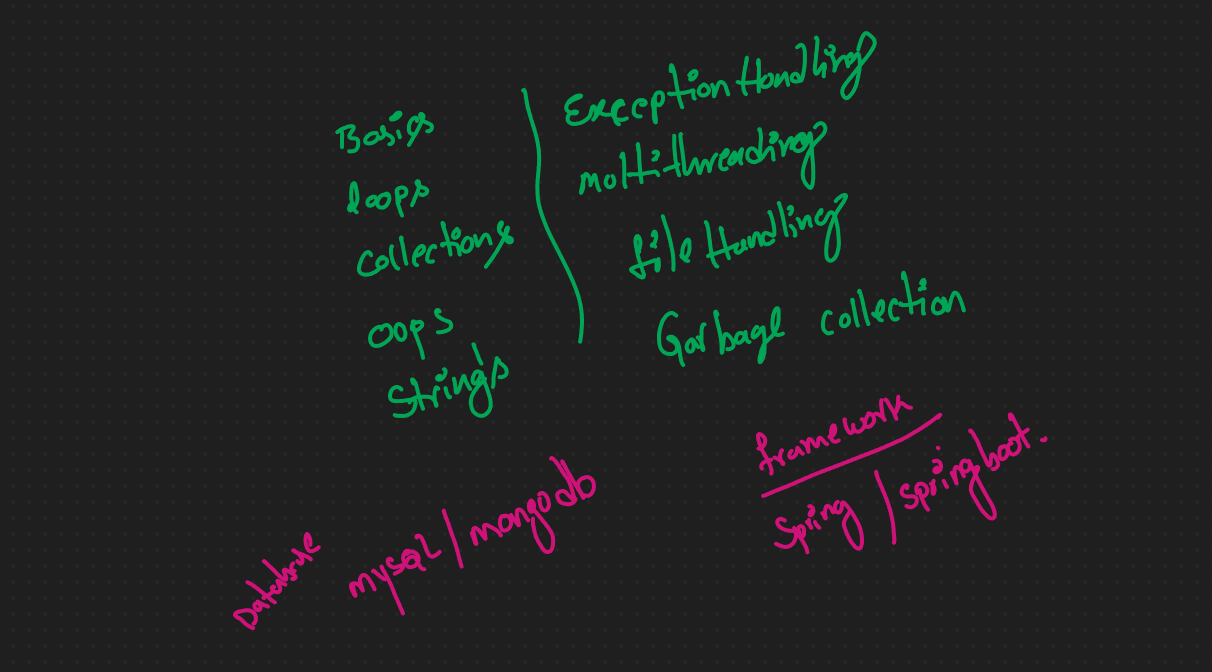 Basics
loops
collections
oops
Strings
Exception Handling
multithreading
file Handling
Garbage collection
framework
Spring / Spring boot.
Database mysql / mongodb